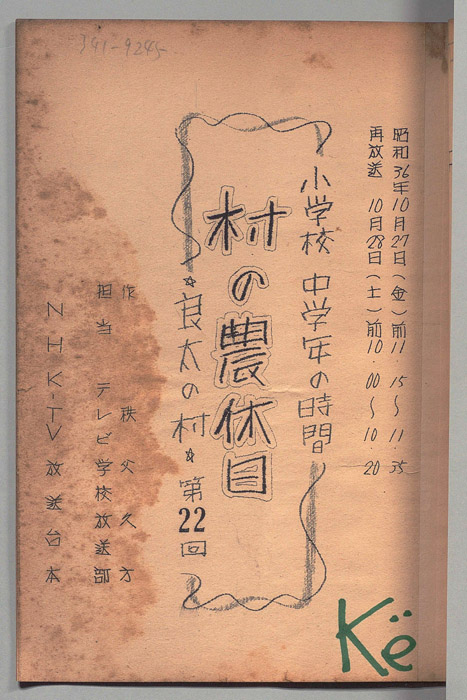 391-9245
昭和36年10月27日(金)前11.15〜11.35
再放送 10月28日(土)前10.00〜10.20
小学校 中学年の時間
村の農休日
☆良太の村☆ 第22回
作 秩父久方
担当 テレビ学校放送部
NHK-TV放送台本
Kë